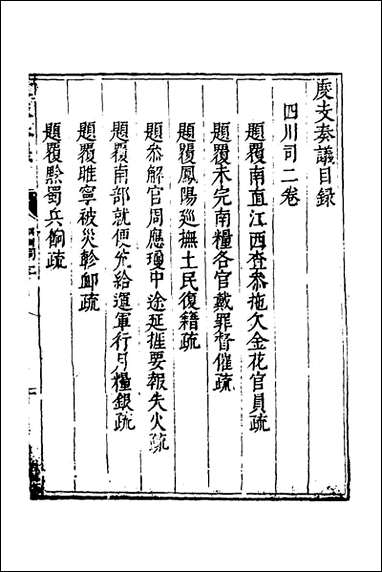 度支奏議目錄
四川司二卷
題覆南直江西查叅拖欠金花官員疏
題覆未完南糧各官戴罪督催疏
題覆鳳陽廵撫土民復籍疏
題叅解官周應瓊中途延捱要報失火疏
題覆南部就便兊給運軍行月糧銀疏
題覆睢寧被災軫䘏疏
題覆黔蜀兵餉疏